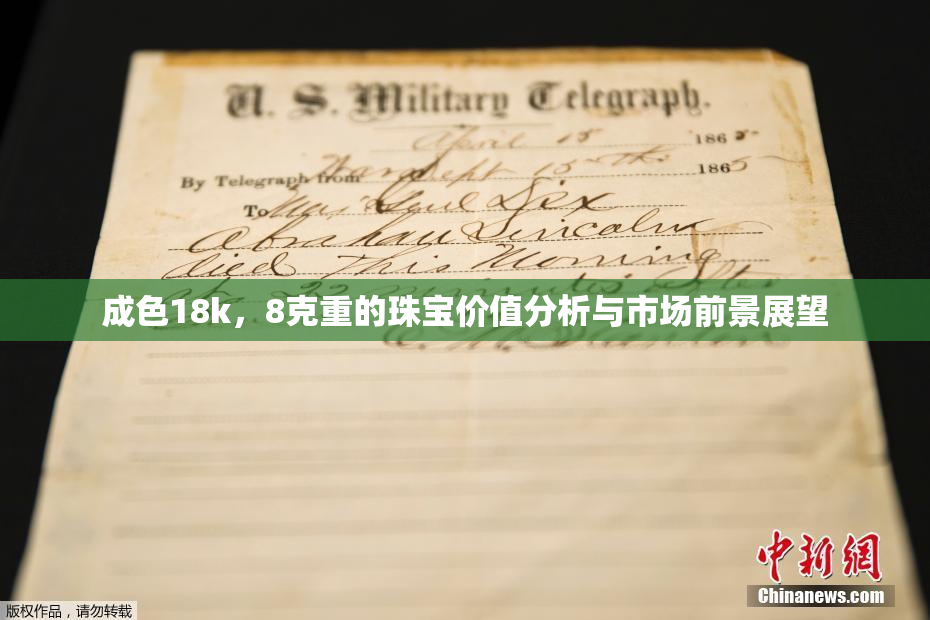 U. S. Military Telegraph.
April 15 1865
By Telegraph from War Dept 15th 1865
To Maj Genl Dix
Abraham Lincoln
died This Morning
22 minutes after
成色18k，8克重的珠宝价值分析与市场前景展望
E. M. Stanton
中新網
Chinanews.com
版权作品，请勿转载